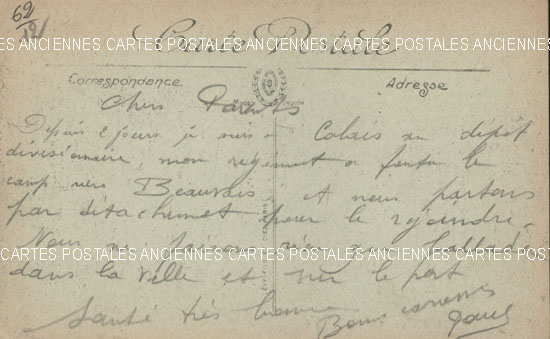 62
121
CARTES POSTALES ANCIENNES CARTES POSTALES ANCIENNES CARTES POSTALES ANCIENNES
Carte Postale
Correspondance
Adresse
Chers Parents
Depuis 2 jours je suis a Calais au depôt
divisionaire, mon regiment a foutu le
camp vers Beauvais; et nous partons
par détachemet pour le rejoindre,
Nous ne faisons rien
CARTES POSTALES ANCIENNES CARTES POSTALES ANCIENNES CARTES POSTALES ANCIENNES
dans la ville et sur le port
Santé très bonne
Bons caresses
Paul